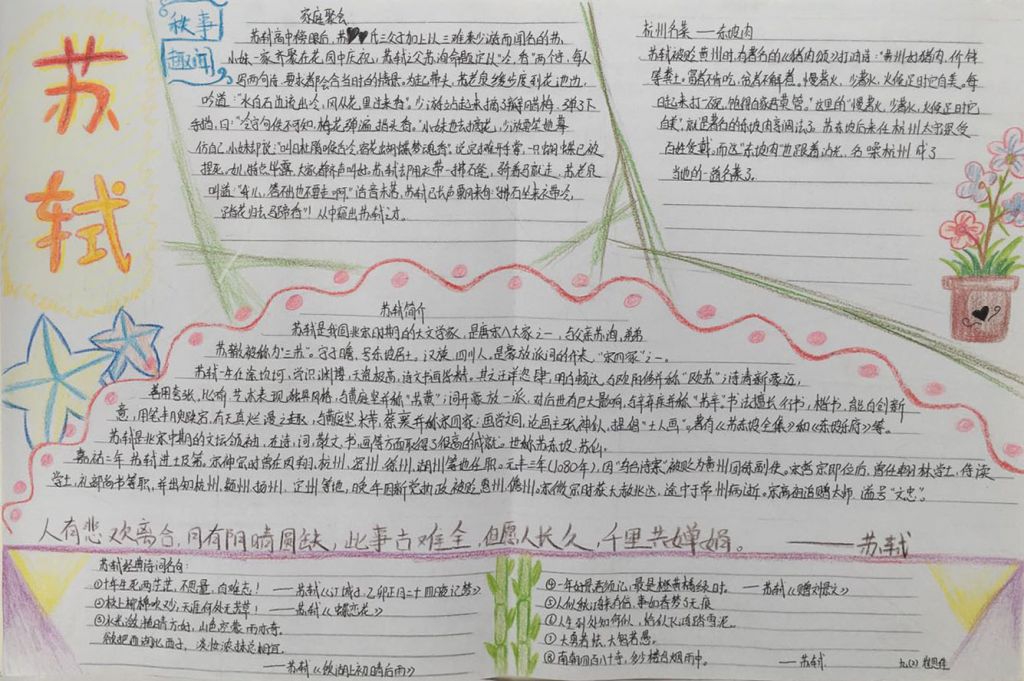 苏轼
轶事
趣闻
家庭聚会
苏轼高中榜眼后，苏
小妹一家齐聚在花园中庆祝，苏轼之父苏洵命题定以“冷、香”两个诗，每人
写两句诗，要求都会合当时的情景。为起带头，苏老泉缓步度到花池边，
吟道：“水自石边流出冷，风从花里过来香”。少游站起来摘
手指，曰：“冷字句佚不可知，梅花弹遍指头香。”小妹也去摘花，少游要笑她摹
仿自己，小妹却说：“叫日杜鹃喉舌冷，宿花蝴蝶梦魂香。”说完摊开手掌，一只蝴蝶已被
捏死，大家都齐声叫好。苏轼却用衣带一拂石凳，骑着马就走，苏老泉
叫道：“我儿，答不也不要走啊。”话音未落，苏轼已长声飘来句“拂石坐来衣带冷，
踏花归去马蹄香！”
杭州名菜——东坡肉
苏轼被贬黄州时，有著名的《猪肉颂》打油诗：“黄州好猪肉，价钱
等粪土。富者不肯吃，贫者不解煮。慢著火，少著水，火候足时它自美。每
日起来打一碗，饱得自家君莫管。”这里的“慢著火，少著水，火候足时它
自美”，就是著名的东坡肉烹调法了。苏东坡后来任杭州太守，深受
百姓爱戴，而这“东坡肉”也跟着沾光，名噪杭州，成了
当地的一道名菜了。
苏轼简介
苏轼是我国北宋时期的大文学家，是唐宋八大家之一，与父亲苏洵，弟弟
苏辙被称为“三苏”。字子瞻，号东坡居士，汉族，四川人，是豪放派词的代表，“宋四家”之一。
苏轼一生仕途坎坷，学识渊博，天资极高，诗文书画皆精。其文汪洋恣肆，明白畅达，与欧阳修并称“欧苏”；诗清新豪迈，
善用夸张、比喻，艺术表现独具风格，与黄庭坚并称“苏黄”；词开豪放一派，对后世有巨大影响，与辛弃疾并称“苏辛”。书法擅长行书，楷书，能自创新
意，用笔丰腴跌宕，有天真烂漫之趣，与黄庭坚、米芾、蔡襄并称宋四家；画学文同，论画主张神似，提倡“士人画”。著有《苏东坡全集》和《东坡乐府》等。
苏轼是北宋中期的文坛领袖，在诗、词、散文、书、画等方面取得了很高的成就。世称苏东坡、苏仙。
嘉祐二年，苏轼进士及第。宋神宗时曾在凤翔，杭州，密州，徐州，湖州等地任职。元丰三年（1080年），因“乌台诗案”被贬为黄州团练副使。宋哲宗即位后，曾任翰林学士，侍读
学士，礼部尚书等职，并出知杭州，颍州，扬州，定州等地，晚年因新党执政被贬惠州，儋州。宋徽宗时获大赦北还，途中于常州病逝。宋高宗追赠太师，谥号“文忠”。
人有悲欢离合，月有阴晴圆缺，此事古难全，但愿人长久，千里共婵娟。——苏轼
苏轼经典诗词名句：
①十年生死两茫茫，不思量，自难忘！——苏轼《江城子·乙卯正月二十日夜记梦》
②枝上柳棉吹又少，天涯何处无芳草！——苏轼《蝶恋花》
③水光潋滟晴方好，山色空蒙雨亦奇。
欲把西湖比西子，淡妆浓抹总相宜。
——苏轼《饮湖上初晴后雨》
④一年好景君须记，最是橙黄橘绿时。——苏轼《赠刘景文》
⑤人似秋鸿来有信，事如春梦了无痕
⑥人生到处知何似，恰似飞鸿踏雪泥。
⑦大勇若怯，大智若愚。
⑧南朝四百八十寺，多少楼台烟雨中。——苏轼